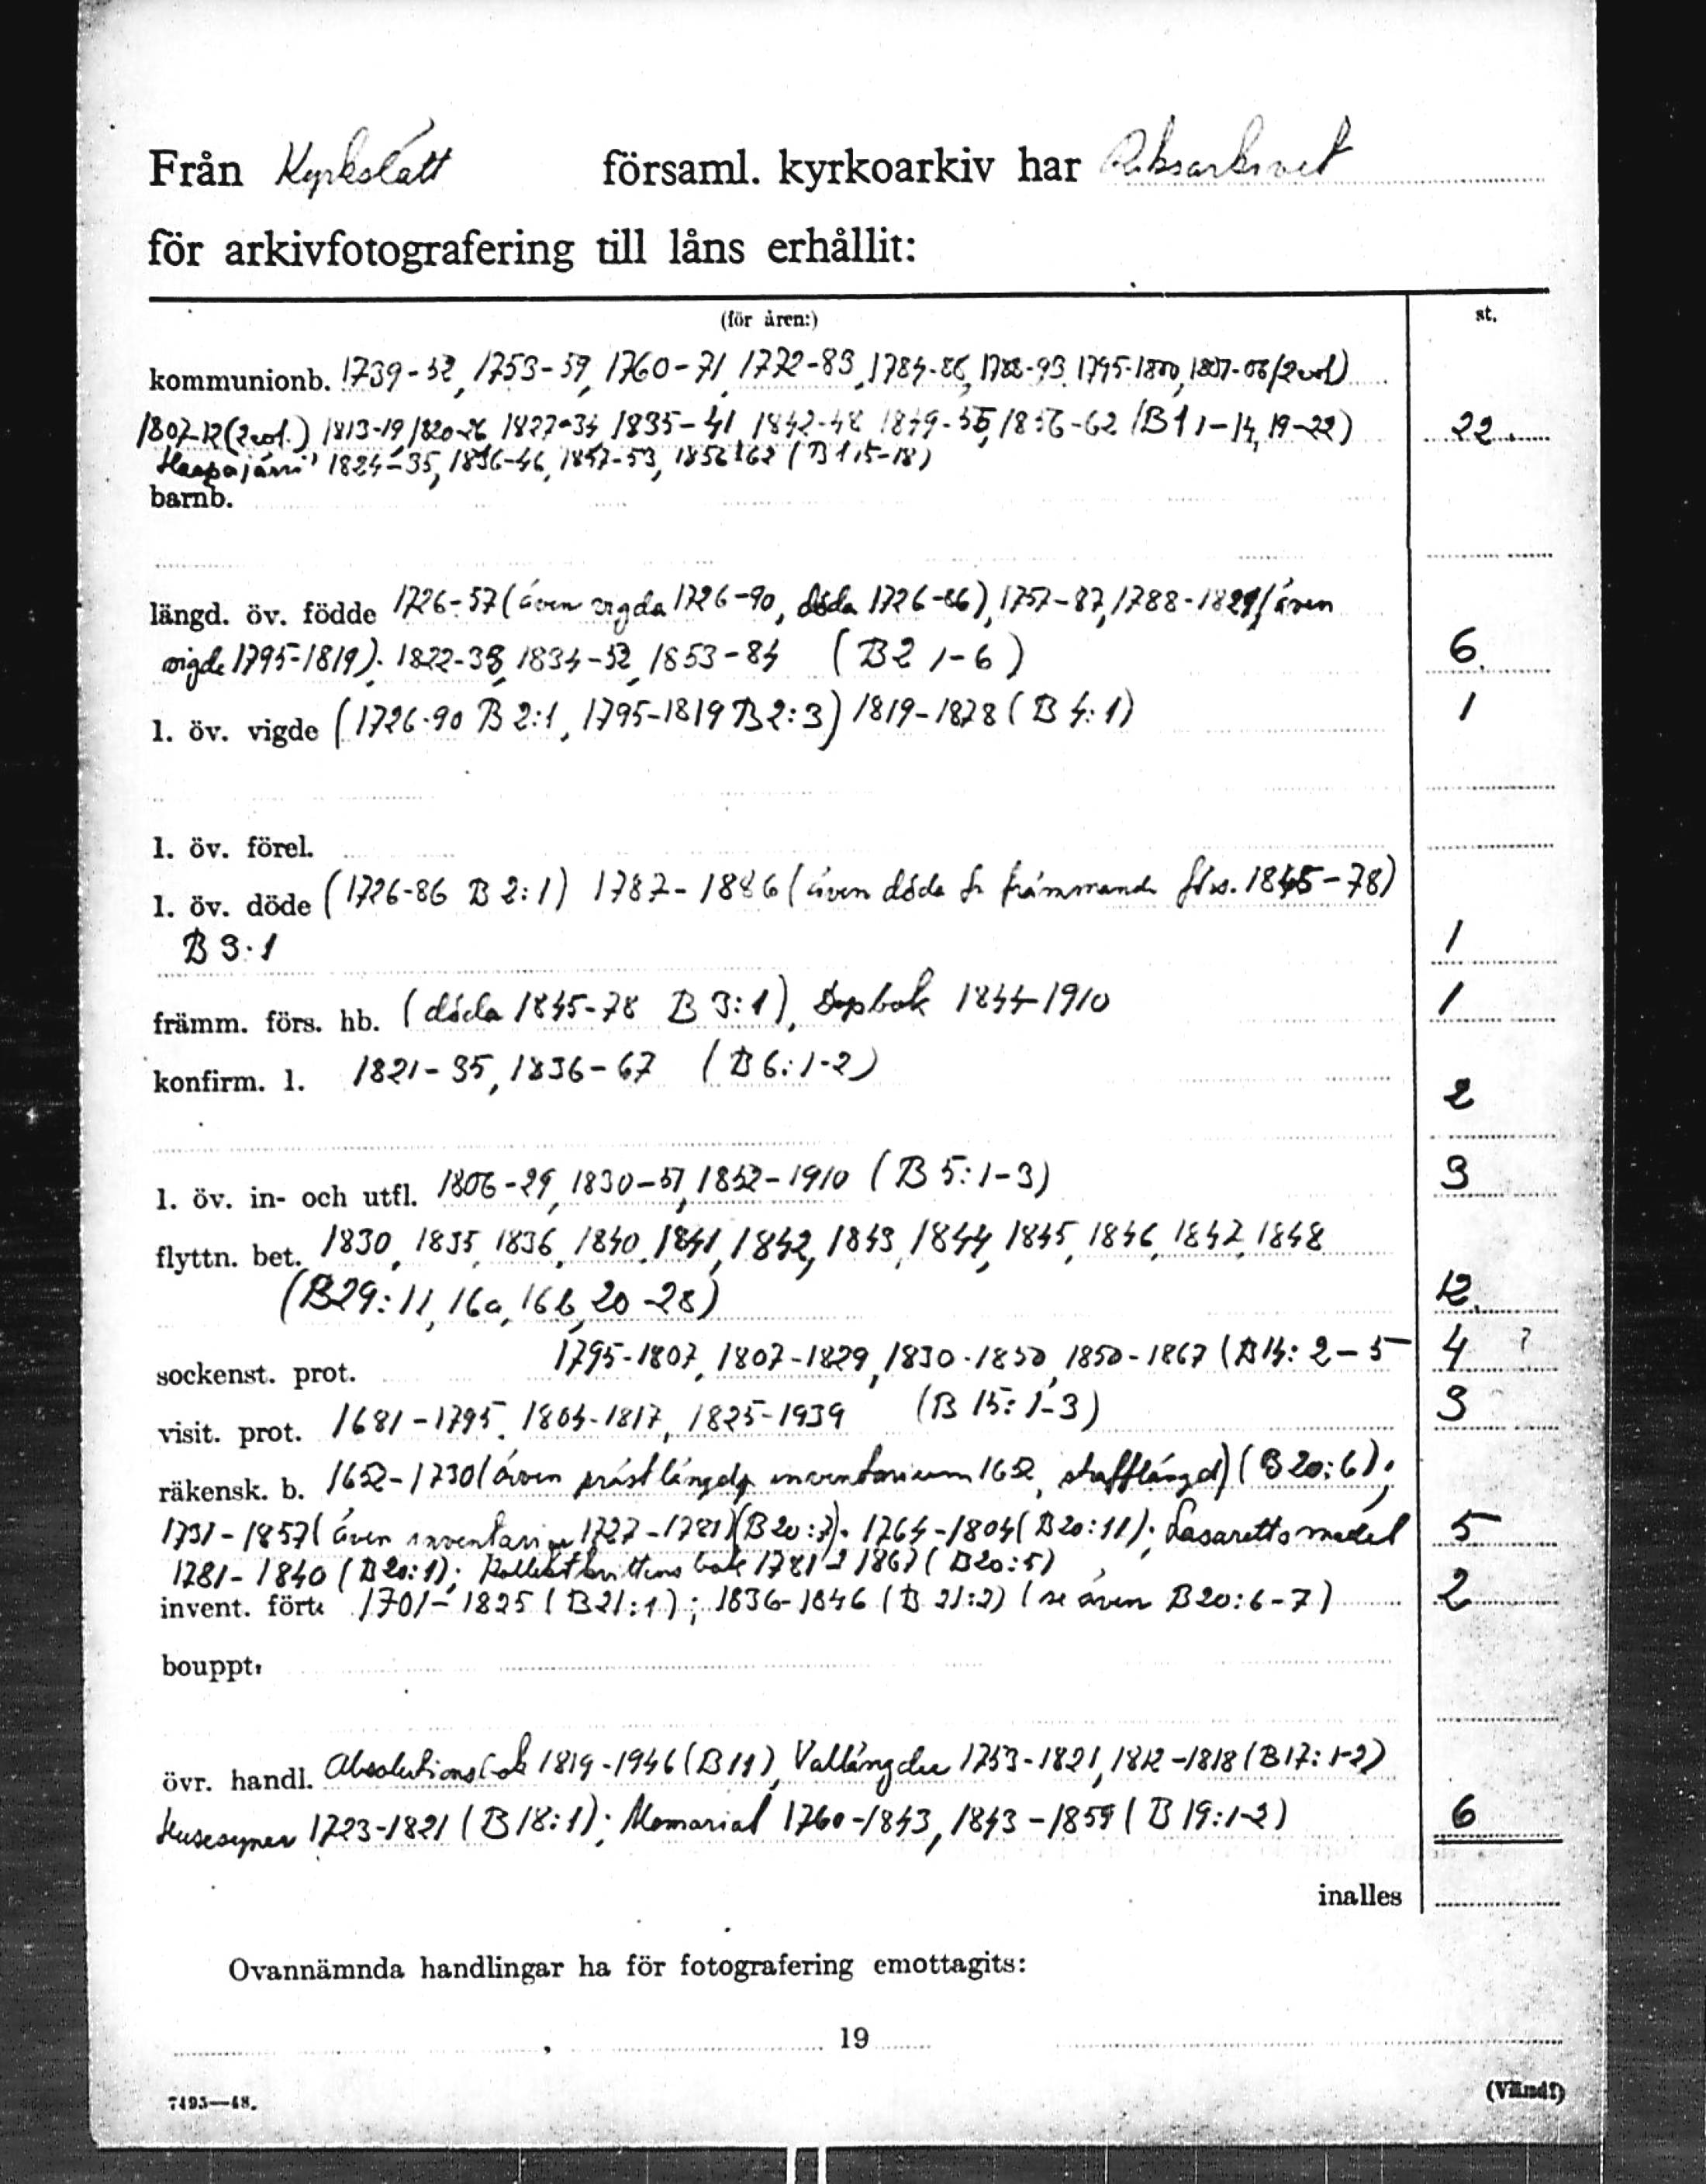 Från Kyrkslätt församl. kyrkoarkiv har Riksarkivet
för arkivfotografering till låns erhållit:
(för åren:) st.
kommunionb. 1739-52, 1753-59, 1760-71, 1772-83, 1784-86, 1788-93, 1795-1800, 1807-08 (2 vol)
1807-12 (2 vol.) 1813-19, 1820-26, 1827-34, 1835-41, 1842-48, 1849-55, 1856-62 (B 1 1-14, 19-22) 22
Haapajärvi 1824-35, 1836-46, 1847-53, 1856-62 (B 1 15-18)
barnb.
längd. öv. födde 1726-57 (även vigda 1726-90, döda 1726-86), 1757-87, 1788-1821 (även
vigde 1795-1819). 1822-33, 1834-52, 1853-84 (B 2 1-6) 6
l. öv. vigde (1726-90 B 2:1, 1795-1819 B 2:3) 1819-1878 (B 4:1) 1
l. öv. förel.
l. öv. döde (1726-86 B 2:1) 1787-1886 (även döda fr främmande förs. 1845-78)
B 3:1 1
främm. förs. hb. (döda 1845-78 B 3:1), Dopbok 1844-1910 1
konfirm. l. 1821-35, 1836-67 (B 6:1-2) 2
l. öv. in- och utfl. 1806-29, 1830-51, 1852-1910 (B 5:1-3) 3
flyttn. bet. 1830, 1835, 1836, 1840, 1841, 1842, 1843, 1844, 1845, 1846, 1847, 1848
(B29: 11, 16a, 16b, 20-28) 12
sockenst. prot. 1795-1807, 1807-1829, 1830-1850, 1850-1867 (B 14: 2-5 4 ?
visit. prot. 1681-1795, 1804-1817, 1825-1939 (B 15: 1-3) 3
räkensk. b. 1652-1730 (även prästlängd, inventarium 1652, stafflängd) (B 20:6);
1731-1857 (även inventarium 1727-1781) (B 20:7); 1764-1804 (B 20:11); Lasarettsmedel 5
1781-1840 (B 20:1); Kollektkvittens bok 1781-1867 (B20:5)
invent. fört. 1701-1825 (B21:1); 1836-1846 (B 21:2) (se även B20:6-7) 2
bouppt.
övr. handl. Absolutionsbok 1819-1946 (B 11), Vallängder 1753-1821, 1812-1818 (B 17: 1-2)
Husesyner 1723-1821 (B 18:1); Memorial 1760-1843, 1843-1859 (B 19:1-2) 6
inalles
Ovannämnda handlingar ha för fotografering emottagits:
, 19
7495—48.
(Vänd!)